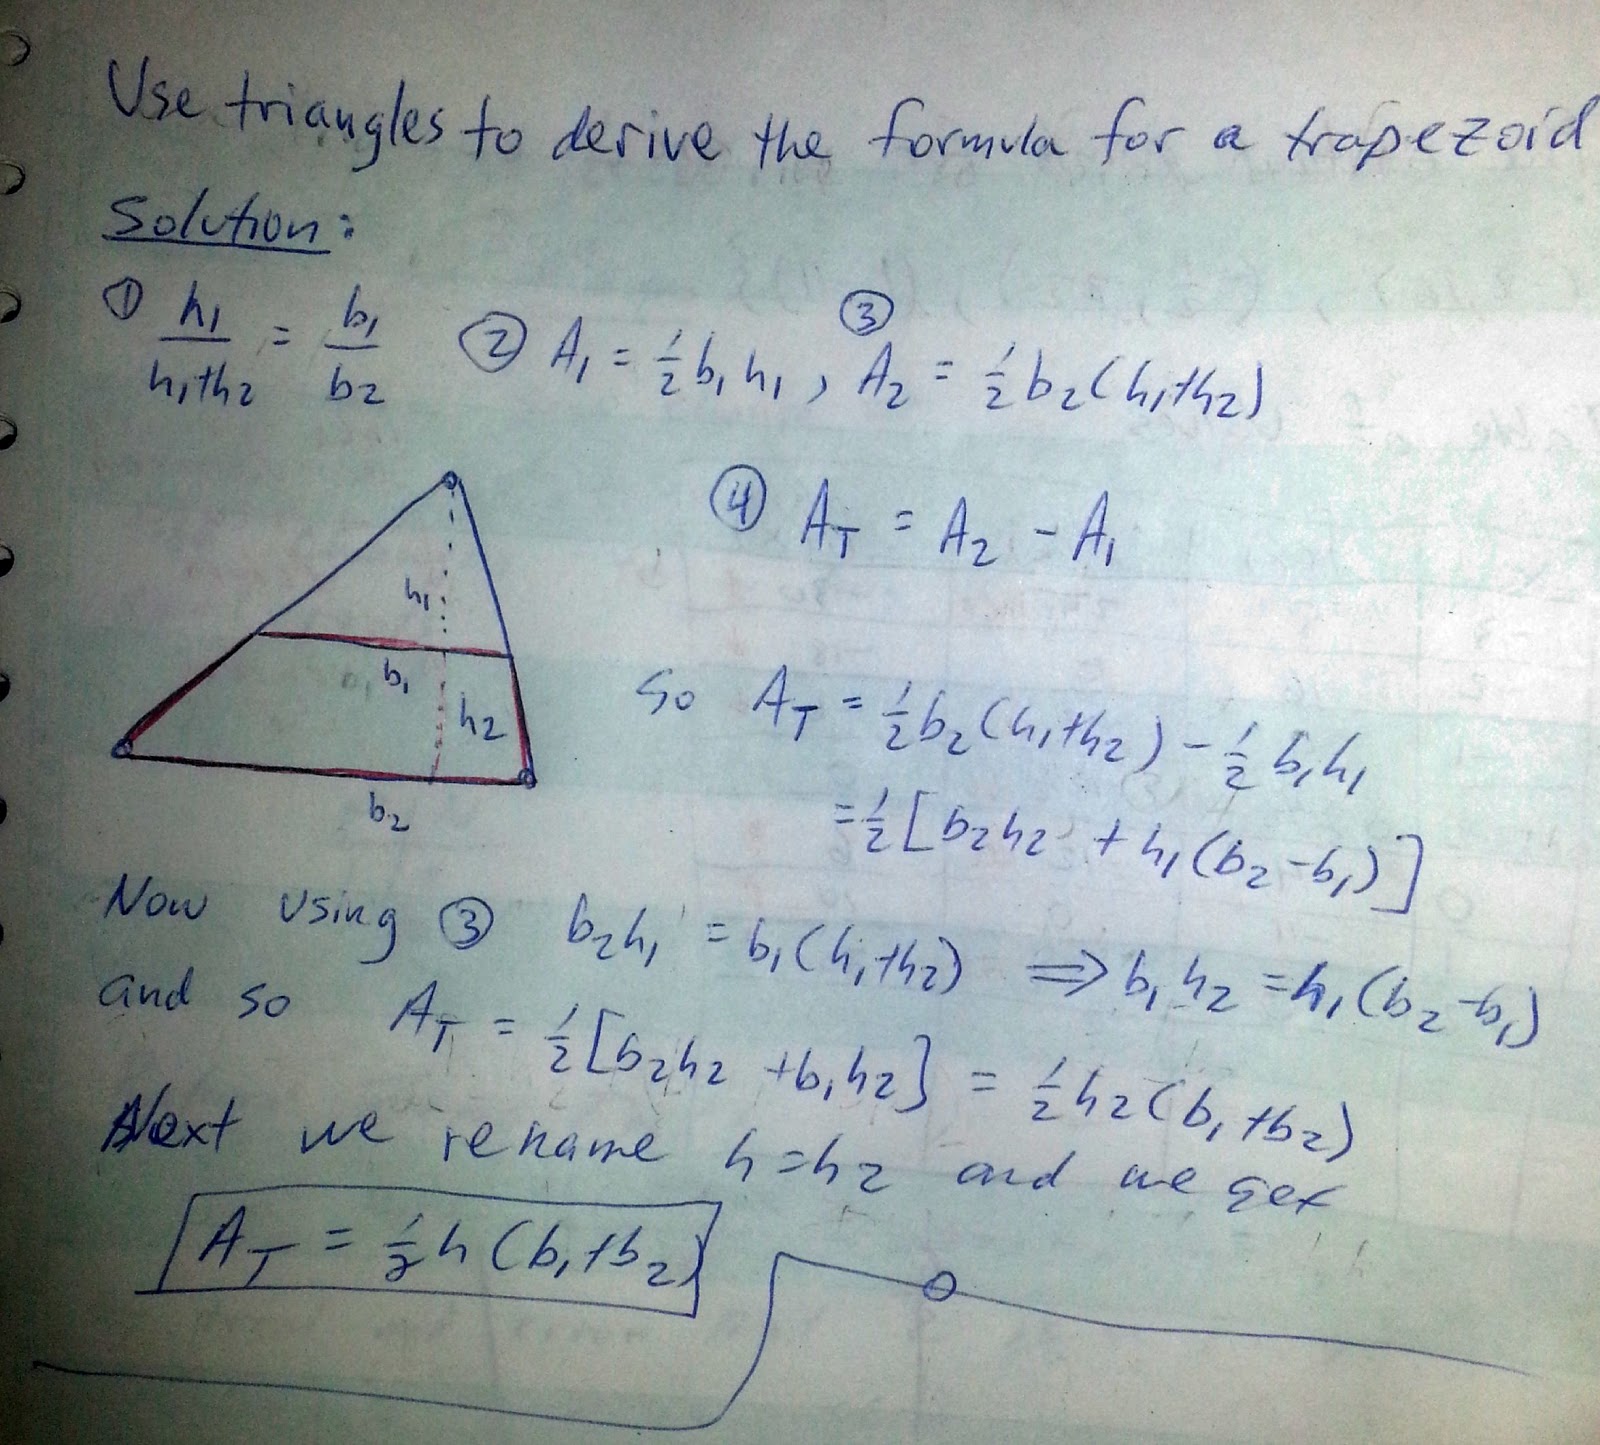 Use triangles to derive the formula for a trapezoid
Solution:
① h₁/(h₁+h₂) = b₁/b₂ ② A₁ = ½ b₁ h₁ , ③ A₂ = ½ b₂ (h₁+h₂)
④ A_T = A₂ - A₁
h₁
b₁
h₂
b₂
So A_T = ½ b₂ (h₁+h₂) - ½ b₁ h₁
= ½ [b₂h₂ + h₁(b₂-b₁)]
Now using ③ b₂h₁ = b₁(h₁+h₂) ⟹ b₁h₂ = h₁(b₂-b₁)
and so A_T = ½ [b₂h₂ + b₁h₂] = ½ h₂ (b₁+b₂)
Next we rename h = h₂ and we get
A_T = ½ h (b₁+b₂)